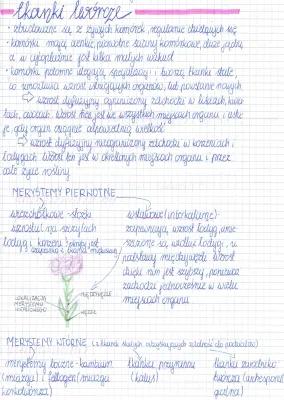 tkanki twórcze
• zbudowane są z żywych komórek, regularnie dzielących się
• komórki mają cienkie, pierwotne ściany komórkowe, duże jądro,
a w cytoplazmie jest kilka małych wakuol
• komórki potomne ulegają specjalizacji i tworzą tkanki stałe,
co umożliwia wzrost istniejących organów, lub powstanie nowych
⇨ wzrost dyfuzyjny ograniczony zachodzi w liściach, kwia-
tach, owocach. Wzrost ten jest we wszystkich miejscach organu i usta-
je, gdy organ osiągnie odpowiednią wielkość
⇨ wzrost nieograniczony zachodzi w korzeniach i
łodygach. Wzrost ten jest w określonych miejscach organu i przez
całe życie rośliny
MERYSTEMY PIERWOTNE
wierzchołkowe - stożki
wzrostu na szczytach
łodyg i korzeni
wstawowe (interkalarne)-
zapewniają wzrost łodyg, umie-
szczone są wzdłuż łodygi, u
nasady międzywęźli. Wzrost
dzięki nim jest szybszy, ponieważ
zachodzi jednocześnie w wielu
miejscach organu
LOKALIZACJA
MERYSTEMU
WSTAWOWEGO
MIĘDZYWĘŹLE
WĘZEŁ
MERYSTEMY WTÓRNE (z tkanek stałych odzyskujących zdolność do podziałów)
merystemy boczne - kambium
(miazga) i fellogen (miazga
korkotwórcza)
tkanka przyranna
(kalus)
tkanka zarodniko-
twórcza (archespor)